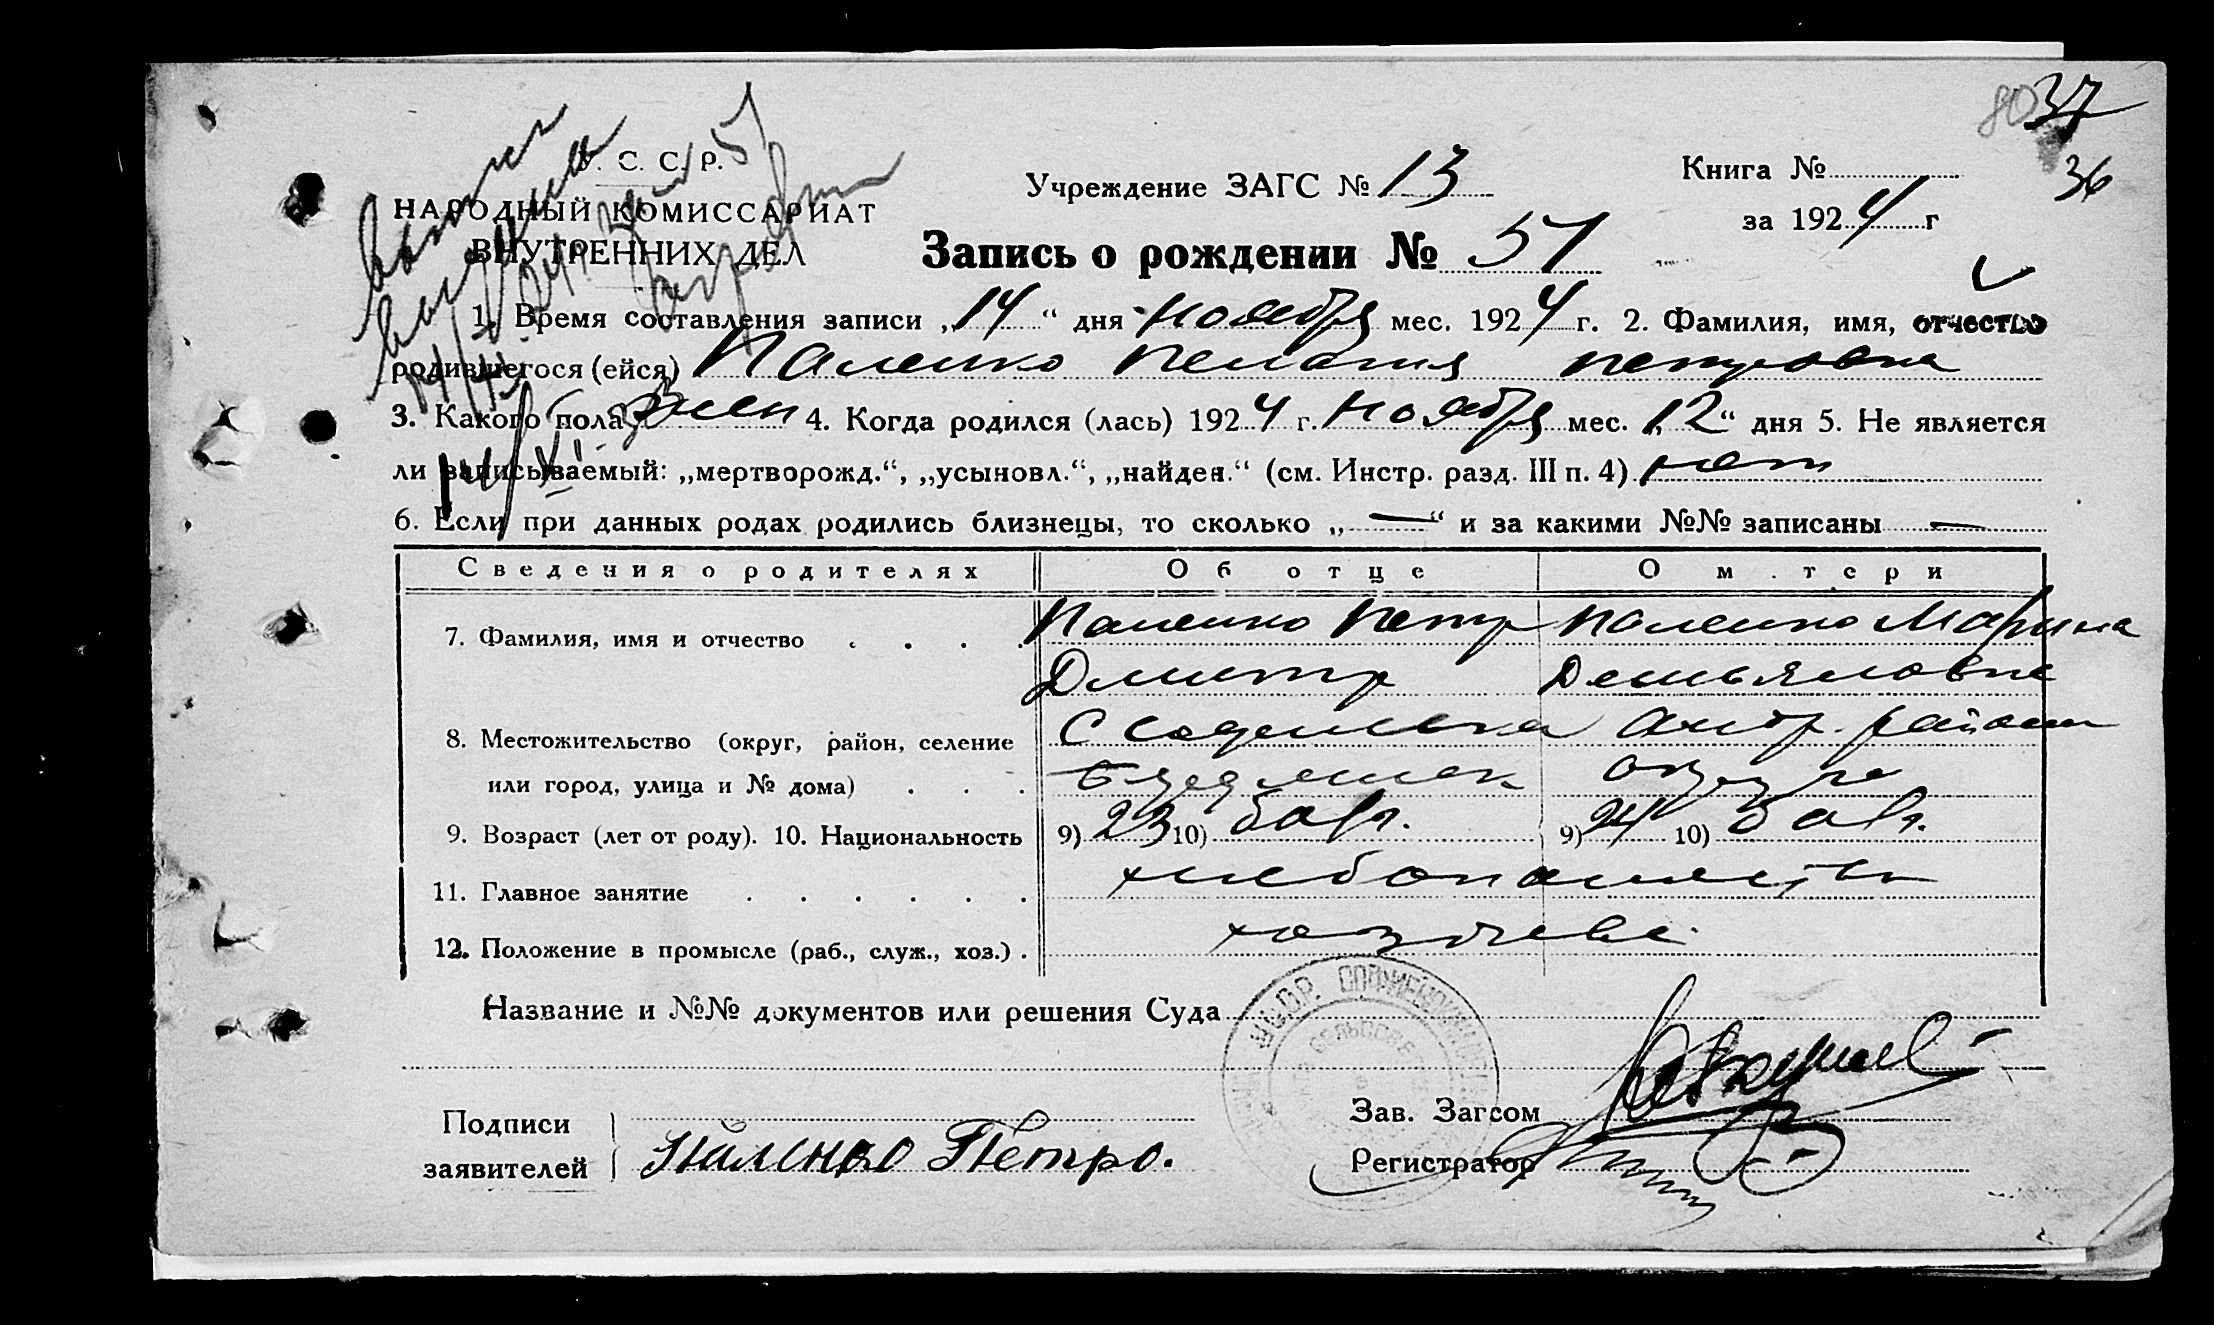 8037
36
С. С. Р.
НАРОДНЫЙ КОМИССАРИАТ
ВНУТРЕННИХ ДЕЛ
Учреждение ЗАГС № 13
Книга №
за 1924 г
Запись о рождении № 51
1. Время составления записи „14“ дня ноября мес. 1924 г. 2. Фамилия, имя, отчество
родившегося (ейся) Паленко Пелагия Петровна
3. Какого пола жен 4. Когда родился (лась) 1924 г. ноября мес. „12“ дня 5. Не является
ли записываемый: „мертворожд.“, „усыновл.“, „найден.“ (см. Инстр. разд. III п. 4) нет
6. Если при данных родах родились близнецы, то сколько „—“ и за какими №№ записаны —
Сведения о родителях Об отце О м.тери
7. Фамилия, имя и отчество . . . . Паленко Петр Паленко Марина
Дмитр Демьяновна
8. Местожительство (округ, район, селение С район
или город, улица и № дома) . . . округа
9. Возраст (лет от роду). 10. Национальность 9) 23 10) болг. 9) 24 10) болг.
11. Главное занятие . . . . . . хлебопашество
12. Положение в промысле (раб., служ., хоз.) . хозяева
Название и №№ документов или решения Суда
Подписи
заявителей Паленко Петро.
Зав. Загсом
Регистратор